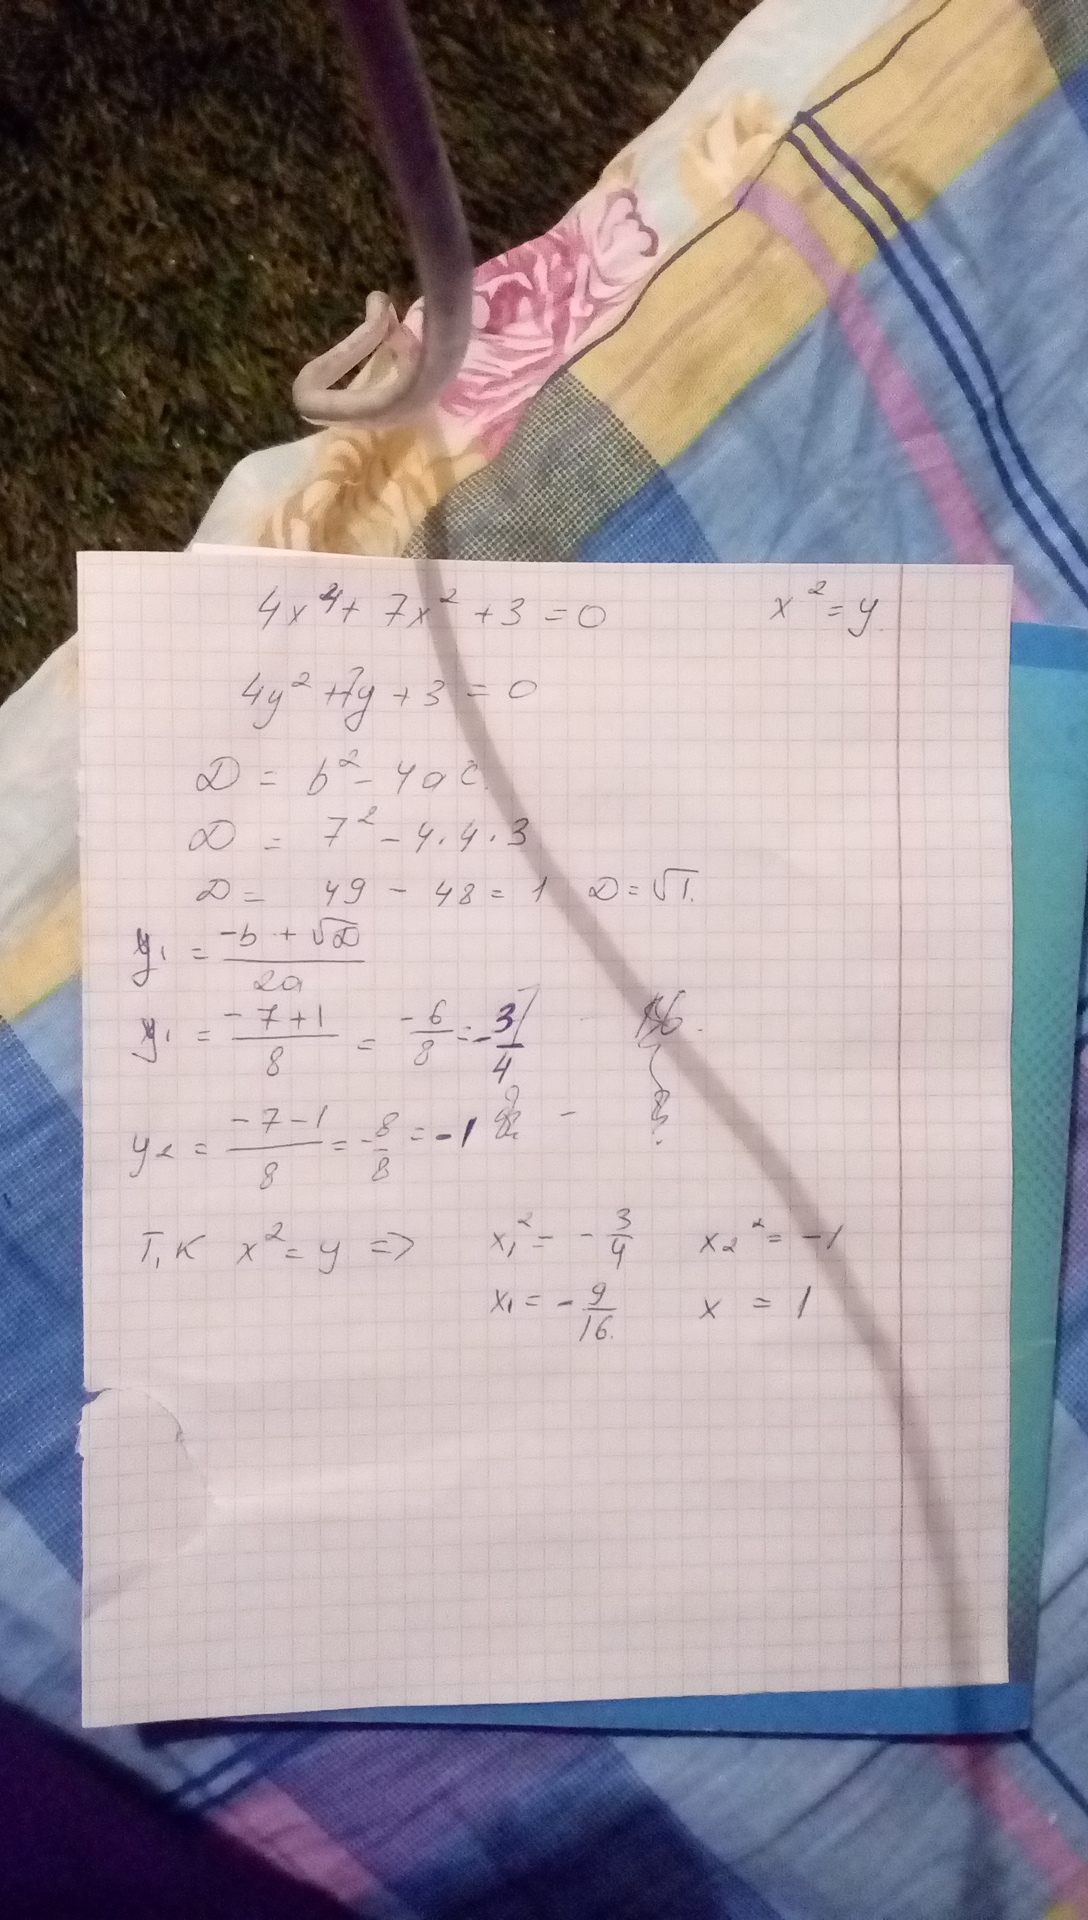 4x⁴ + 7x² + 3 = 0 x² = y.
4y² + 7y + 3 = 0
D = b² - 4ac.
D = 7² - 4·4·3
D = 49 - 48 = 1 D = √1.
y₁ = (-b + √D)/2a
y₁ = (-7+1)/8 = -6/8 = -3/4
y₂ = (-7-1)/8 = -8/8 = -1
Т,к x² = y => x₁² = -3/4 x₂² = -1
x₁ = -9/16. x = 1